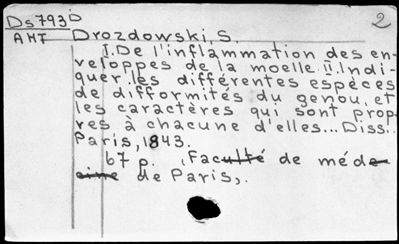 Ds793D 2
AMT Drozdowski, S.
I. De l'inflammation des en-
veloppes de la moelle. II. Indi-
quer les différentes espèces
de difformités du genou, et
les caractères qui sont prop-
res à chacune d'elles... Diss.
Paris, 1843.
67 p. (Faculté de méde
cine de Paris,.